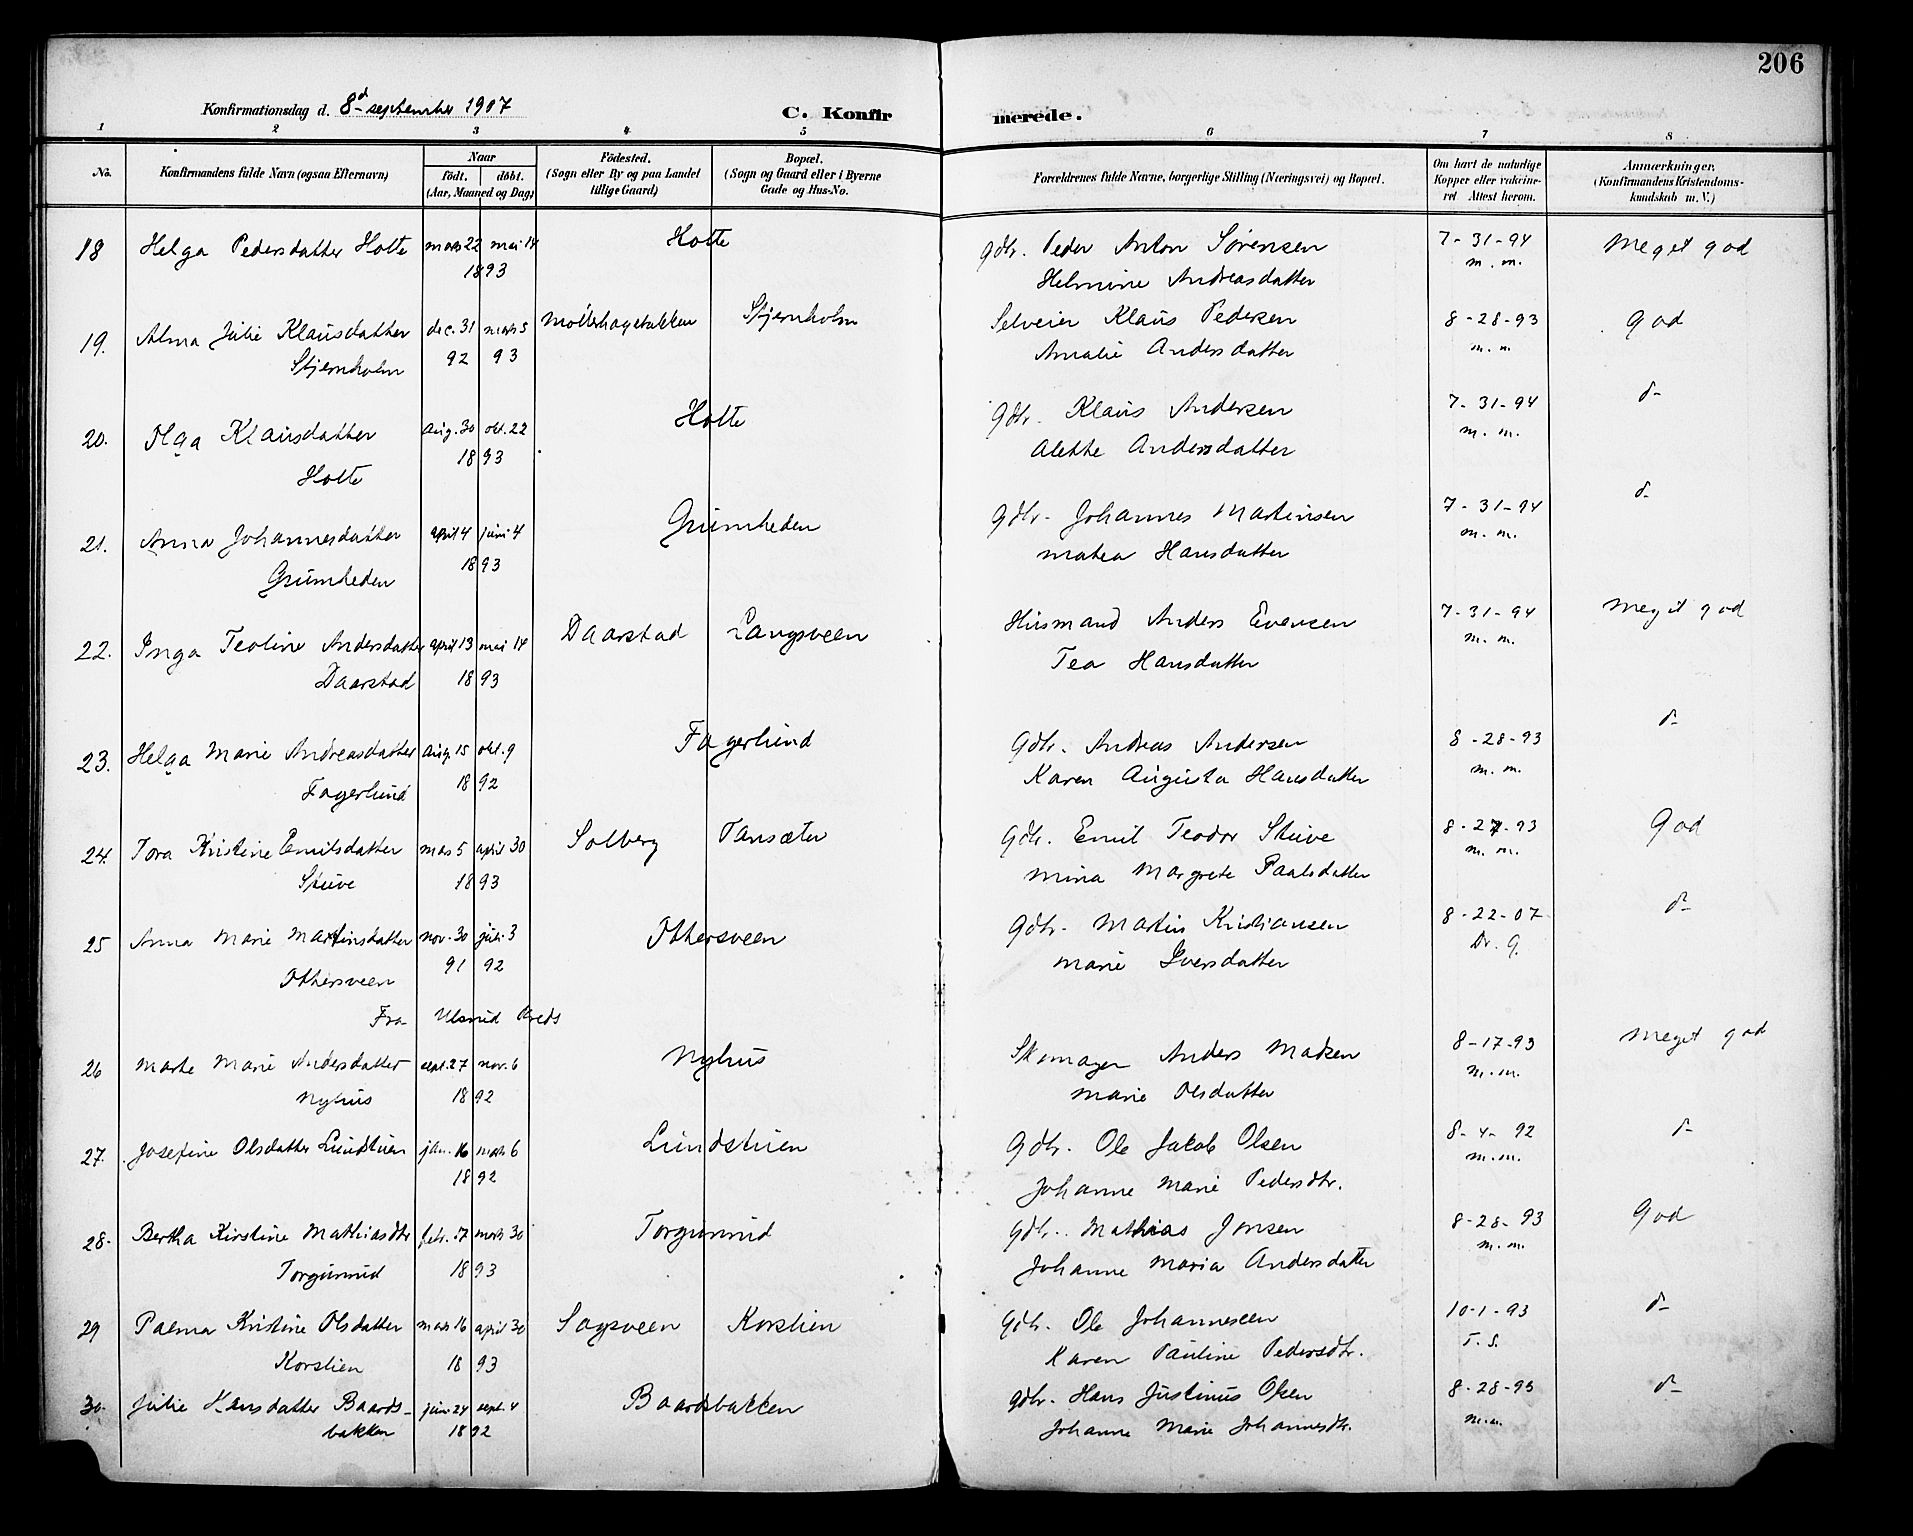 206
Konfirmationsdag d. 8d september 1907 C. Konfirmerede.
1 2 3 4 5 6 7 8
No. Konfirmandens fulde Navn (ogsaa Efternavn) Naar født. døbt. (Aar, Maaned og Dag) Fødested. (Sogn eller By og paa Landet tillige Gaard) Bopæl. (Sogn og Gaard eller i Byerne Gade og Hus-No. Forældrenes fulde Navne, borgerlige Stilling (Næringsvei) og Bopæl. Om havt de naturlige Kopper eller vakcineret Attest herom. Anmærkninger, (Konfirmandens Kristendomskundskab m. V.)
18 Helga Pedersdatter Holte mars 22 mai 14 Holte Gdbr. Peder Anton Sørensen 7-31-94 Meget god
1893 Helmine Andreasdatter m. m.
19. Alma Julie Klausdatter dec. 31 mars 5 Møllerhagebakken Stjernholm Selveier Klaus Pedersen 8-28-93 God
Stjernholm 92 93 Amalie Andersdatter m. m.
20. Olga Klausdatter aug. 30 okt. 22 Holte Gdbr. Klaus Andersen 7-31-94 d-
Holte 1893 Alette Andersdatter m. m.
21. Anna Johannesdatter april 4 juni 4 Grumheden Gdbr. Johannes Martinsen 7-31-94 d-
Grumheden 1893 Matea Hansdatter m. m.
22. Inga Teoline Andersdatter april 13 mai 14 Daarstad Langsveen Husmand Anders Evensen 7-31-94 Meget god
Daarstad 1893 Tea Hansdatter m. m.
23. Helga Marie Andreasdatter aug. 15 okt. 9 Fagerlund Gdbr. Andreas Andersen 8-28-93 d-
Fagerlund 1892 Karen Augusta Hansdatter m. m.
24. Tora Kristine Emilsdatter mars 5 april 30 Solberg Tansæter Gdbr. Emil Teodor Stuve 8-27-93 God
Stuve 1893 Mina Margrete Paalsdatter m. m.
25 Anna Marie Martinsdatter nov. 30 juli 3 Ottersveen Gdbr. Martin Kristiansen 8-22-07 d-
Ottersveen 91 92 Marie Iversdatter Dr. G.
Fra Ulsrud Kreds
26 Marte Marie Andersdatter sept. 27 nov. 6 Nyhus Skomager Anders Madsen 8-17-93 Meget god
Nyhus 1892 Marie Olsdatter m. m.
27. Josefine Olsdatter Lundstuen jan. 16 mars 6 Lundstuen Gdbr. Ole Jakob Olsen 8-4-92 d-
1892 Johanne Marie Pedersdtr. m. m.
28. Bertha Kirstine Mathiasdtr febr. 17 mars 30 Torgunrud Gdbr. Mathias Jonsen 8-28-93 God
Torgunrud 1893 Johanne Maria Andersdatter m. m.
29 Palma Kristine Olsdatter mars 16 april 30 Sagsveen Korslien Gdbr. Ole Johannesen 10-1-93 d-
Korslien 1893 Karen Pauline Pedersdtr. T. S.
30. Julie Hansdatter Baards- juni 24 sept. 4 Baardsbakken Gdbr. Hans Justinus Olsen 8-28-93 d-
bakken 1892 Johanne Marie Johannesdtr. m. m.